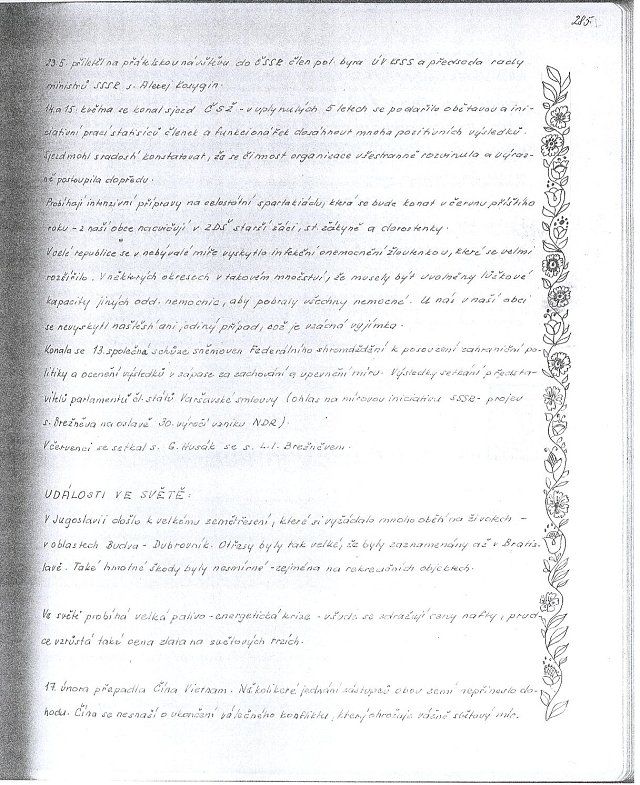 285.
23.5. přiletěl na přátelskou návštěvu do ČSSR člen pol. byra ÚV KSSS a předseda rady
ministrů SSSR s. Alexej Kosygin.
14. a 15. května se konal sjezd ČSŽ - v uplynulých 5 letech se podařilo obětavou a ini-
ciativní prací statisíců členek a funkcionářek dosáhnout mnoha pozitivních výsledků.
Sjezd mohl s radostí konstatovat, že se činnost organizace všestranně rozvinula a výraz-
ně postoupila dopředu.
Probíhají intenzivní přípravy na celostátní spartakiádu, která se bude konat v červnu příštího
roku - z naší obce nacvičují v ZDŠ starší žáci, st. žákyně a dorostenky.
V celé republice se v nebývalé míře vyskytlo infekční onemocnění žloutenkou, které se velmi
rozšířilo. V některých okresech v takovém množství, že musely být uvolněny lůžkové
kapacity jiných odd. nemocnic, aby pobraly všechny nemocné. U nás v naší obci
se nevyskytl naštěstí ani jediný případ, což je vzácná výjimka.
Konala se 13. společná schůze sněmoven Federálního shromáždění k posouzení zahraniční po-
litiky a ocenění výsledků v zápase za zachování a upevnění míru. Výsledky setkání předsta-
vitelů parlamentů čl. států Varšavské smlouvy (ohlas na mírovou iniciativu SSSR - projev
s. Brežněva na oslavě 30. výročí vzniku NDR).
V červenci se setkal s. G. Husák se s. L. I. Brežněvem.
UDÁLOSTI VE SVĚTĚ:
V Jugoslavii došlo k velkému zemětřesení, které si vyžádalo mnoho obětí na životech -
v oblastech Budva - Dubrovník. Otřesy byly tak velké, že byly zaznamenány až v Bratis-
lavě. Také hmotné škody byly nesmírné - zejména na rekreačních objektech.
Ve světě probíhá velká palivo-energetická krize - všude se zdražují ceny nafty, prud-
ce vzrůstá také cena zlata na světových trzích.
17. února přepadla Čína Vietnam. Několikeré jednání zástupců obou zemí nepřineslo do-
hodu. Čína se nesnaží o ukončení válečného konfliktu, který ohrožuje vážně světový mír.